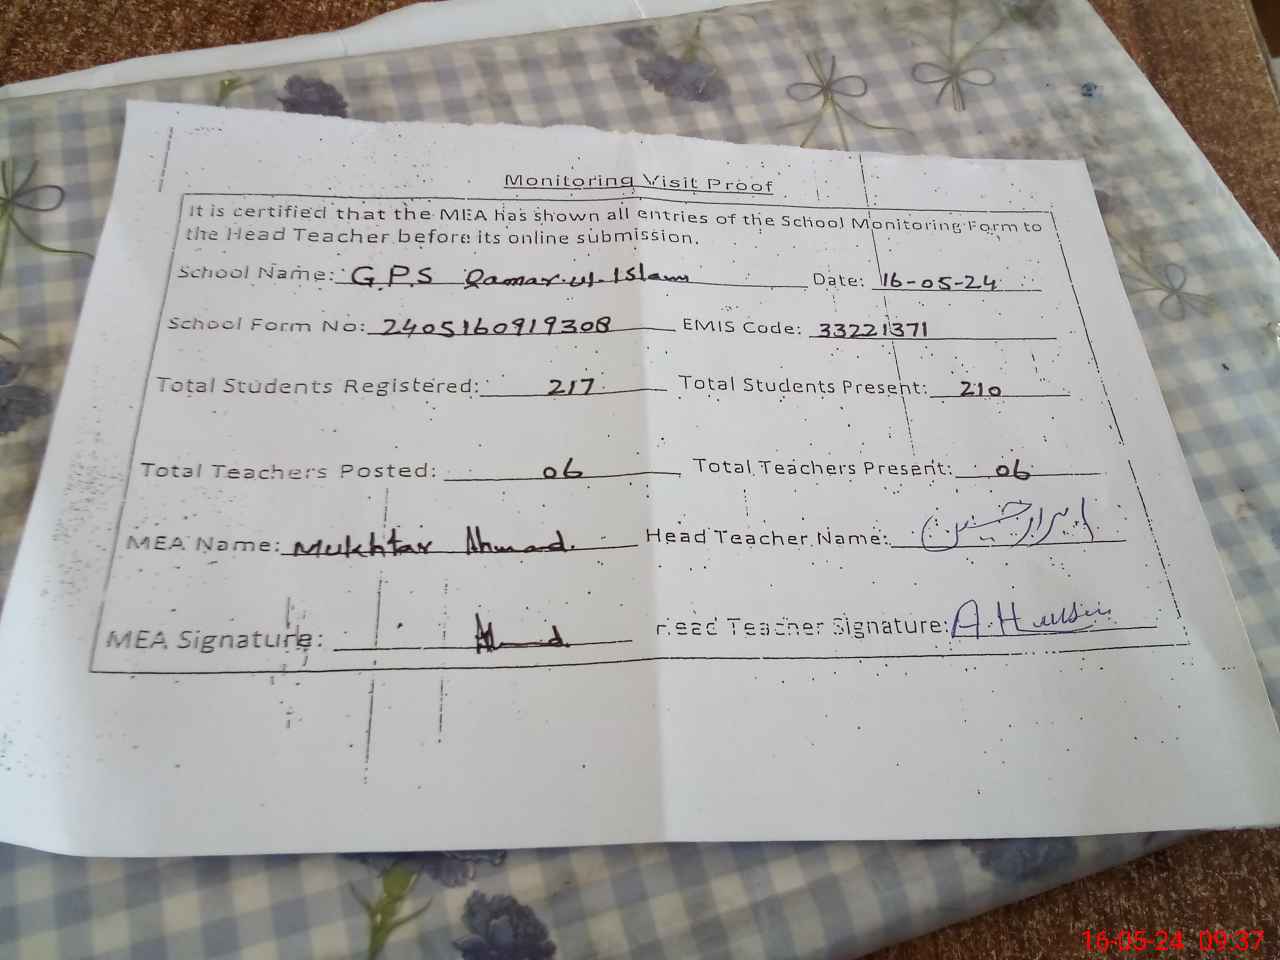 Monitoring Visit Proof
It is certified that the MEA has shown all entries of the School Monitoring Form to
the Head Teacher before its online submission.
School Name: G.P.S Qamar.ul.Islam Date: 16-05-24
School Form No: 2405160919308 EMIS Code: 33221371
Total Students Registered: 217 Total Students Present: 210
Total Teachers Posted: 06 Total Teachers Present: 06
MEA Name: Mukhtar Ahmad. Head Teacher Name: ابرار حسین
MEA Signature: Ahmad Head Teacher Signature: A.Hussain
16-05-24 09:37